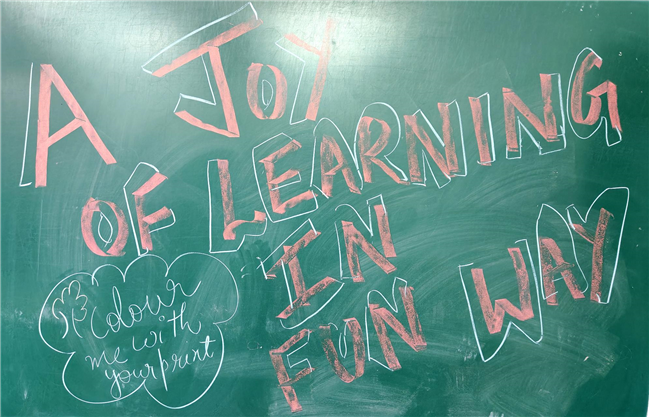 A JOY
OF LEARNING
IN
FUN WAY
Colour
me with
yourprint